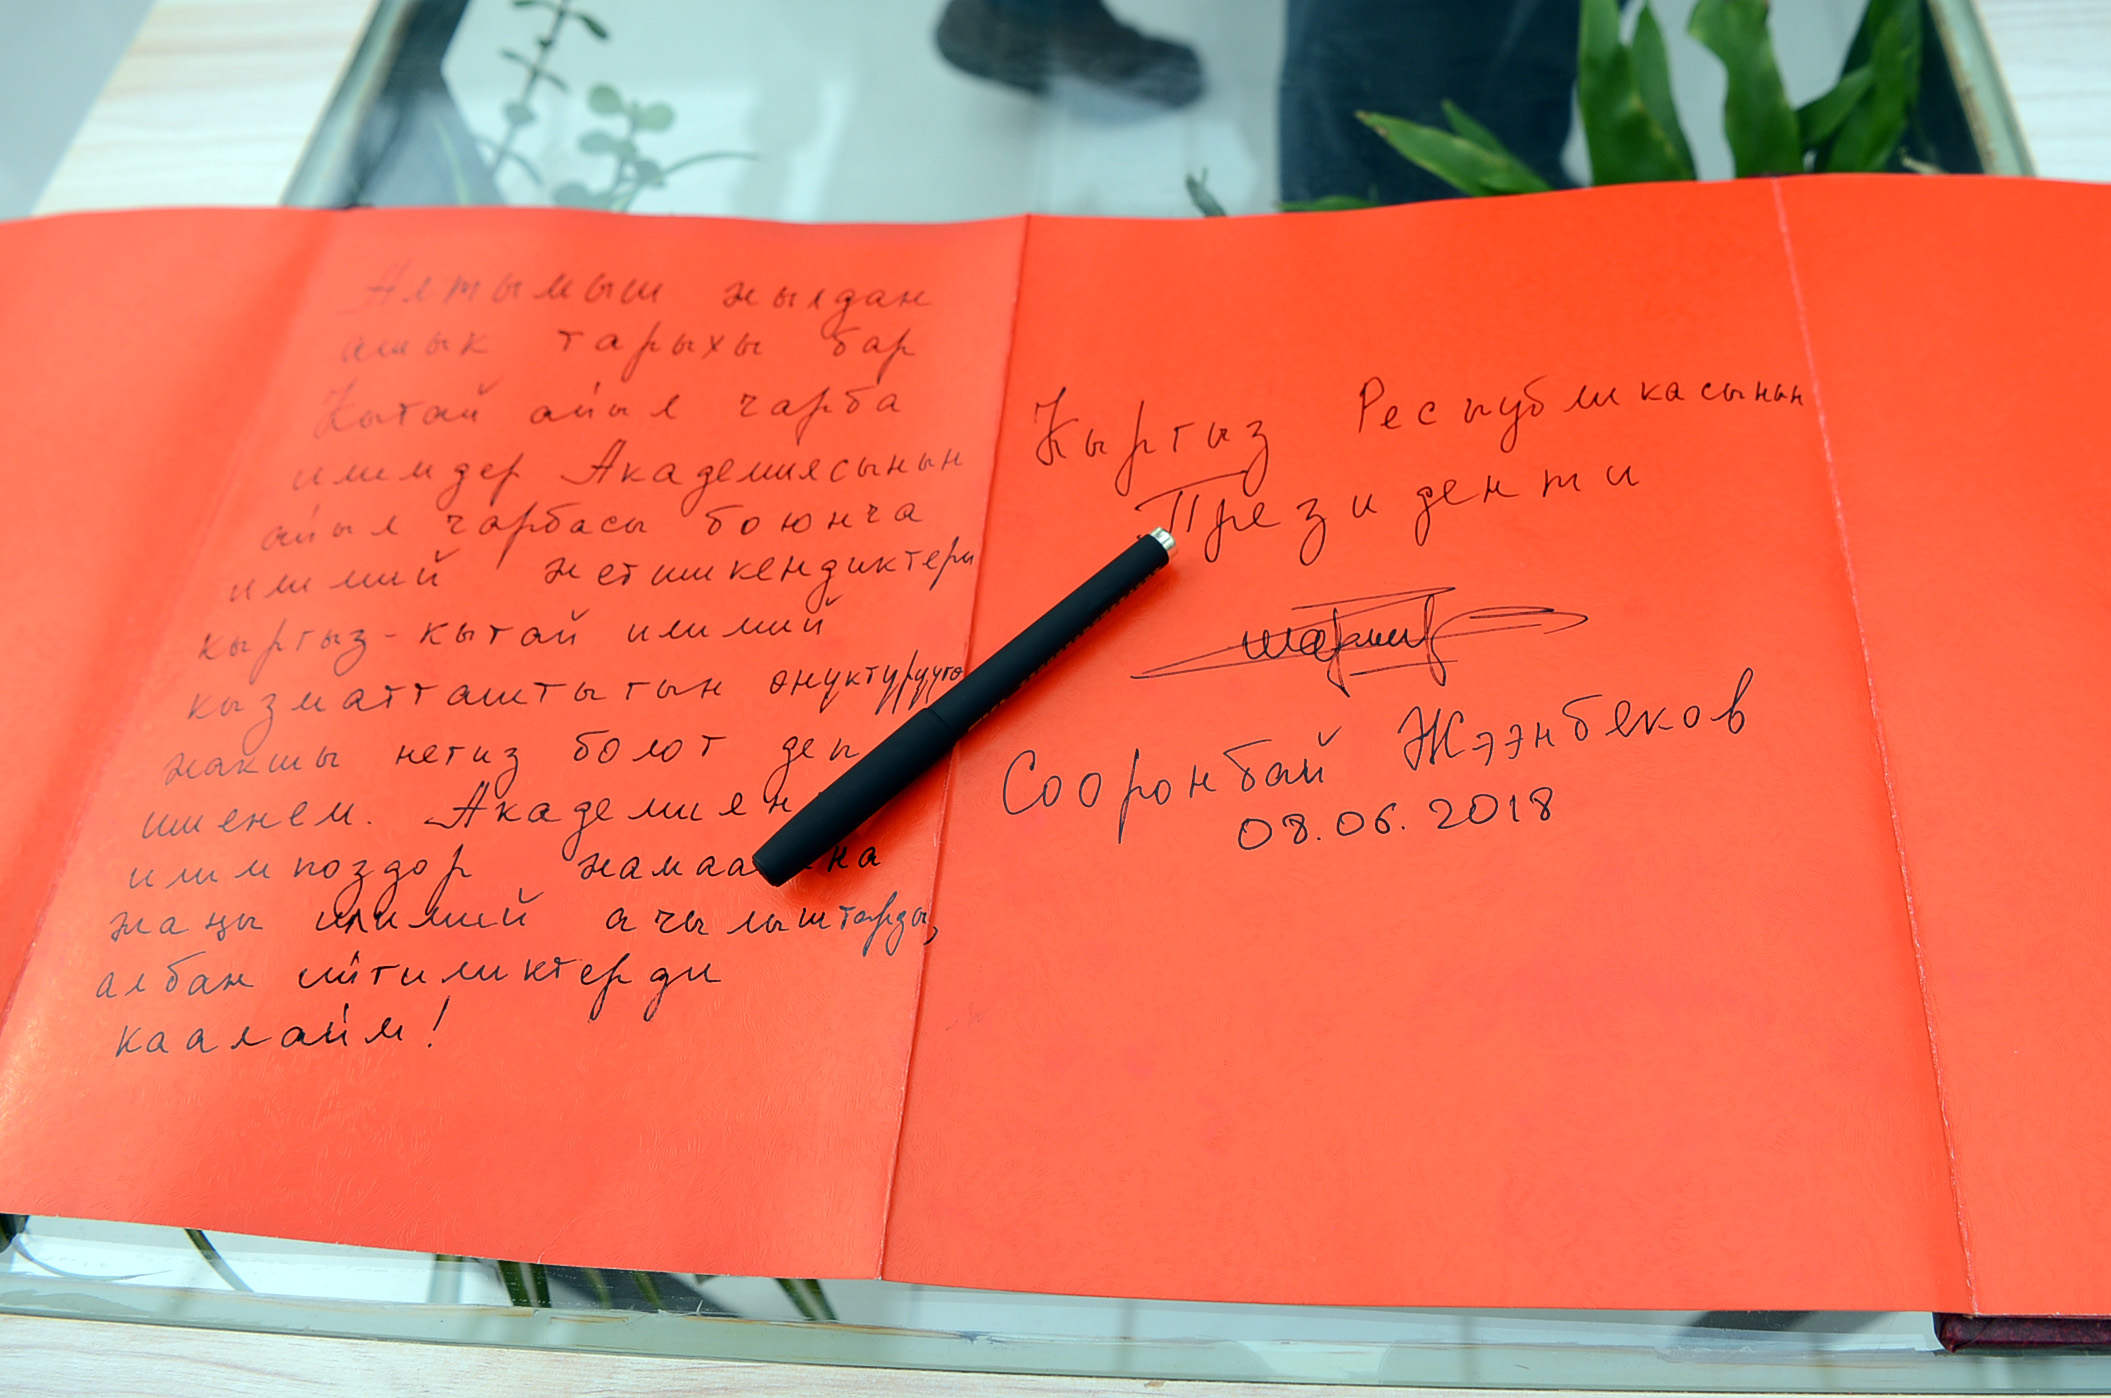 Алтымыш жылдан
ашык тарыхы бар
Кытай айыл чарба
илимдер Академиясынын
айыл чарбасы боюнча
илимий жетишкендиктери
кыргыз-кытай илимий
кызматташтыгын өнүктүрүүгө
жакшы негиз болот деп
ишенем. Академиян
илимпоздор
жаңы илимий ачылыштарды,
албан ийгиликтерди
каалайм!
Кыргыз Республикасынын
Президенти
Сооронбай Жээнбеков
08.06.2018